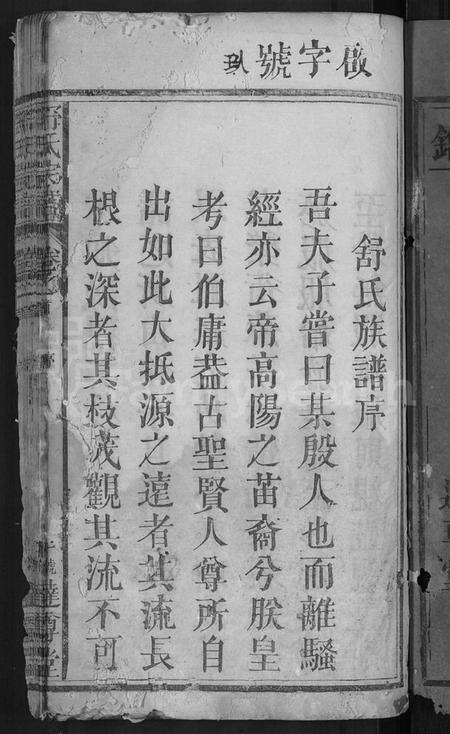 玖
字號
舒氏族譜序
吾夫子嘗曰某殷人也而離騷
經亦云帝高陽之苗裔兮朕皇
考曰伯庸葢古聖賢人尊所自
出如此大抵源之遠者其流長
根之深者其枝茂觀其流不可
舒氏族譜
達尊堂